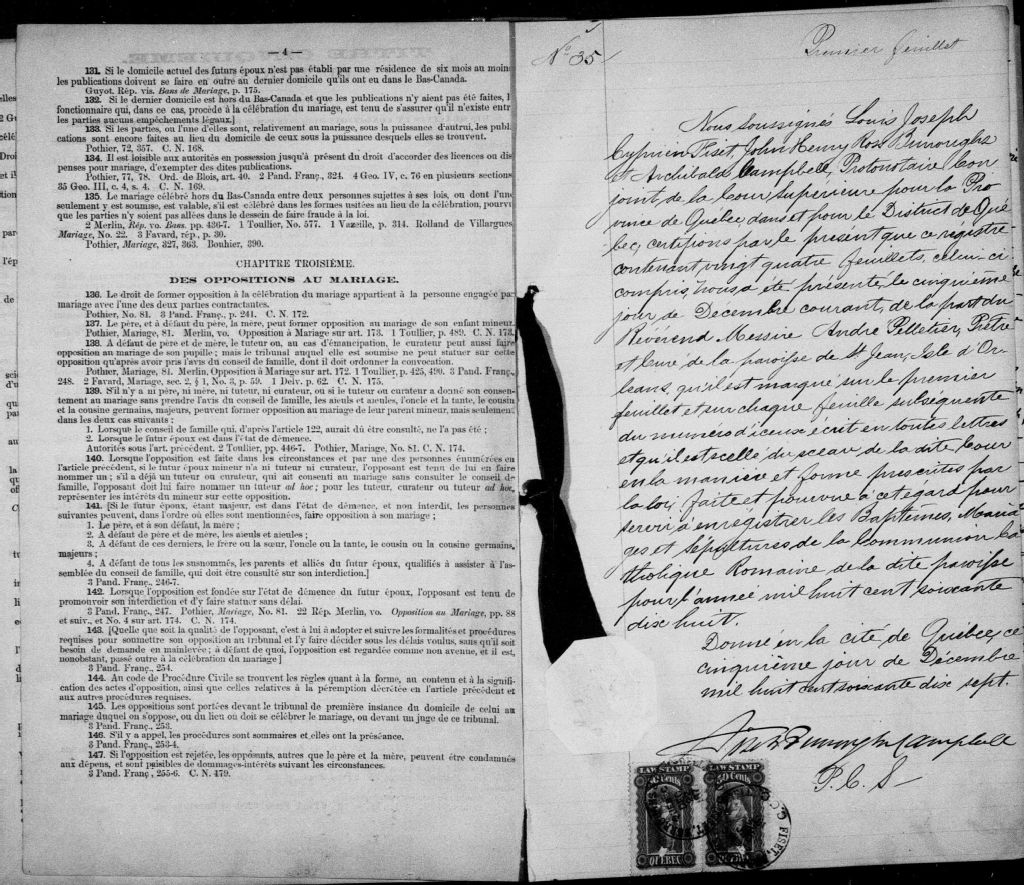 — 4 —
131. Si le domicile actuel des futurs époux n'est pas établi par une résidence de six mois au moins
les publications doivent se faire en outre au dernier domicile qu'ils ont eu dans le Bas-Canada.
Guyot. Rép. vis. Bans de Mariage, p. 175.
132. Si le dernier domicile est hors du Bas-Canada et que les publications n'y aient pas été faites, l
fonctionnaire qui, dans ce cas, procède à la célébration du mariage, est tenu de s'assurer qu'il n'existe entr
les parties aucuns empêchements légaux.]
133. Si les parties, ou l'une d'elles sont, relativement au mariage, sous la puissance d'autrui, les publ
cations sont encore faites au lieu du domicile de ceux sous la puissance desquels elles se trouvent.
Pothier, 72, 357. C. N. 168.
134. Il est loisible aux autorités en possession jusqu'à présent du droit d'accorder des licences ou dis
penses pour mariage, d'exempter des dites publications.
Pothier, 77, 78. Ord. de Blois, art. 40. 2 Pand. Franç., 324. 4 Geo. IV, c. 76 en plusieurs sections
35 Geo. III, c. 4, s. 4. C. N. 169.
135. Le mariage célébré hors du Bas-Canada entre deux personnes sujettes à ses lois, ou dont l'un
seulement y est soumise, est valable, s'il est célébré dans les formes usitées au lieu de la célébration, pourvu
que les parties n'y soient pas allées dans le dessein de faire fraude à la loi.
2 Merlin, Rép. vo. Bans. pp. 436-7. 1 Toullier, No. 577. 1 Vazeille, p. 314. Rolland de Villargues
Mariage, No. 22. 3 Favard, rép., p. 30.
Pothier, Mariage, 327, 363. Bouhier, 390.
CHAPITRE TROISIÈME.
DES OPPOSITIONS AU MARIAGE.
136. Le droit de former opposition à la célébration du mariage appartient à la personne engagée pa
mariage avec l'une des deux parties contractantes.
Pothier, No. 81. 3 Pand. Franç., p. 241. C. N. 172.
137. Le père, et à défaut du père, la mère, peut former opposition au mariage de son enfant mineur.
Pothier, Mariage, 81. Merlin, vo. Opposition à Mariage sur art. 173. 1 Toullier, p. 489. C. N. 173.
138. A défaut de père et de mère, le tuteur ou, au cas d'émancipation, le curateur peut aussi faire
opposition au mariage de son pupille ; mais le tribunal auquel elle est soumise ne peut statuer sur cette
opposition qu'après avoir pris l'avis du conseil de famille, dont il doit ordonner la convocation.
Pothier, Mariage, 81. Merlin, Opposition à Mariage sur art. 172. 1 Toullier, p. 425, 490. 3 Pand. Franç.,
248. 2 Favard, Mariage, sec. 2, § 1, No. 3, p. 59. 1 Delv. p. 62. C. N. 175.
139. S'il n'y a ni père, ni mère, ni tuteur, ni curateur, ou si le tuteur ou curateur a donné son consen-
tement au mariage sans prendre l'avis du conseil de famille, les aieuls et aieules, l'oncle et la tante, le cousin
et la cousine germains, majeurs, peuvent former opposition au mariage de leur parent mineur, mais seulement
dans les deux cas suivants :
1. Lorsque le conseil de famille qui, d'après l'article 122, aurait dû être consulté, ne l'a pas été ;
2. Lorsque le futur époux est dans l'état de démence.
Autorités sous l'art. précédent. 2 Toullier, pp. 446-7. Pothier, Mariage, No. 81. C. N. 174.
140. Lorsque l'opposition est faite dans les circonstances et par une des personnes énumérées en
l'article précédent, si le futur époux mineur n'a ni tuteur ni curateur, l'opposant est tenu de lui en faire
nommer un ; s'il a déjà un tuteur ou curateur, qui ait consenti au mariage sans consulter le conseil de
famille, l'opposant doit lui faire nommer un tuteur ad hoc ; pour les tuteur, curateur ou tuteur ad hoc
représenter les intérêts du mineur sur cette opposition.
141. [Si le futur époux, étant majeur, est dans l'état de démence, et non interdit, les personnes
suivantes peuvent, dans l'ordre où elles sont mentionnées, faire opposition à son mariage ;
1. Le père, et à son défaut, la mère ;
2. A défaut de père et de mère, les aieuls et aieules ;
3. A défaut de ces derniers, le frère ou la sœur, l'oncle ou la tante, le cousin ou la cousine germains,
majeurs ;
4. A défaut de tous les susnommés, les parents et alliés du futur époux, qualifiés à assister à l'as-
semblée du conseil de famille, qui doit être consulté sur son interdiction.]
3 Pand. Franç., 246-7.
142. Lorsque l'opposition est fondée sur l'état de démence du futur époux, l'opposant est tenu de
promouvoir son interdiction et d'y faire statuer sans délai.
3 Pand. Franç., 247. Pothier, Mariage, No. 81. 22 Rép. Merlin, vo. Opposition au Mariage, pp. 88
et suiv., et No. 4 sur art. 174. C. N. 174.
143. [Quelle que soit la qualité de l'opposant, c'est à lui à adopter et suivre les formalités et procédures
requises pour soumettre son opposition au tribunal et l'y faire décider sous les délais voulus, sans qu'il soit
besoin de demande en mainlevée ; à défaut de quoi, l'opposition est regardée comme non avenue, et il est,
nonobstant, passé outre à la célébration du mariage]
3 Pand. Franç., 254.
144. Au code de Procédure Civile se trouvent les règles quant à la forme, au contenu et à la signifi-
cation des actes d'opposition, ainsi que celles relatives à la péremption décrétée en l'article précédent et
aux autres procédures requises.
145. Les oppositions sont portées devant le tribunal de première instance du domicile de celui au
mariage duquel on s'oppose, ou du lieu où doit se célébrer le mariage, ou devant un juge de ce tribunal.
3 Pand. Franç., 253.
146. S'il y a appel, les procédures sont sommaires et elles ont la préséance.
3 Pand. Franç., 253-4.
147. Si l'opposition est rejetée, les opposants, autres que le père et la mère, peuvent être condamnés
aux dépens, et sont passibles de dommages-intérêts suivant les circonstances.
3 Pand. Franç, 255-6. C. N. 179.
No 35
Premier feuillet
Nous soussignés Louis Joseph
Cyprien Fiset, John Henry Ross Burroughs
et Archibald Campbell, Protonotaire Con
joint, de la Cour Superieure pour la Pro
vince de Québec, dans et pour le District de Qué
bec, certifions par le présent que ce registre
contenant vingt quatre feuillets, celui-ci
compris, nous a été présenté, le cinquième
jour de Decembre courant, de la part du
Révérend Messire André Pelletier, Prêtre
et Curé de la paroisse de St Jean, Isle d'Or
leans, qu'il est marqué sur le premier
feuillet et sur chaque feuille subséquente
du numéro d'iceux écrit en toutes lettres
et qu'il est scellé du sceau de la dite Cour
en la manière et forme prescrites par
la loi, faite et pourvue à cet égard pour
servir à enrégistrer les Baptêmes, Maria
ges et Sépultures de la Communion Ca
tholique Romaine de la dite paroisse
pour l'année mil huit cent soixante
dix huit.
Donné en la cité de Québec, ce
cinquième jour de Décembre
mil huit cent soixante dix sept.
Fiset Burroughs Campbell
P. C. S
LAW STAMP
50 Cents
QUEBEC
LAW STAMP
50 Cents
QUEBEC
FISET,